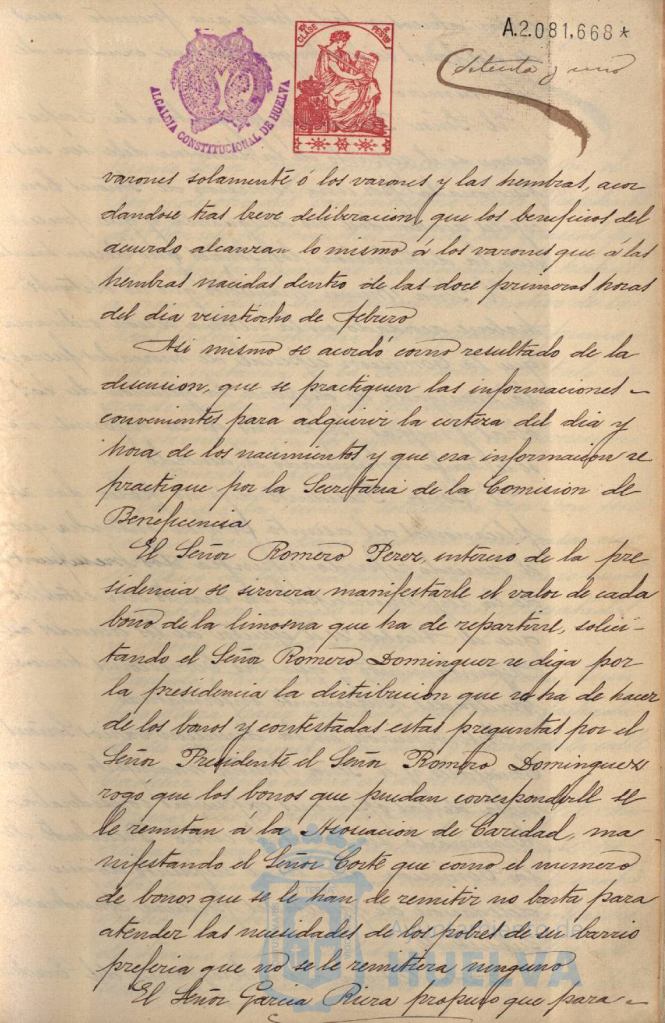 A.2.081,668*
setenta y uno
1ª CLASE PESETAS
ALCALDIA CONSTITUCIONAL DE HUELVA
varones solamente ó los varones y las hembras, acor
dandose tras breve deliberacion, que los beneficios del
acuerdo alcanzan lo mismo á los varones que á las
hembras nacidas dentro de las doce primeras horas
del dia veintiocho de febrero
Asi mismo se acordó como resultado de la
discusion, que se practiquen las informaciones
convenientes para adquirir la certeza del dia y
hora de los nacimientos y que esa informacion se
practique por la Secretaria de la Comision de
Beneficencia
El Señor Romero Perez, intereso de la pre
sidencia se sirviera manifestarle el valor de cada
bono de la limosna que ha de repartirse, solici-
tando el Señor Romero Dominguez se diga por
la presidencia la distribucion que se ha de hacer
de los bonos y contestadas estas preguntas por el
Señor Presidente el Señor Romero Dominguez
rogó que los bonos que puedan corresponderle se
le remitan á la Asociacion de Caridad, ma
nifestando el Señor Corté que como el numero
de bonos que se le han de remitir no basta para
atender las necesidades de los pobres de su barrio
preferia que no se le remitiera ninguno
El Señor Garcia Riera propuso que para
HUELVA